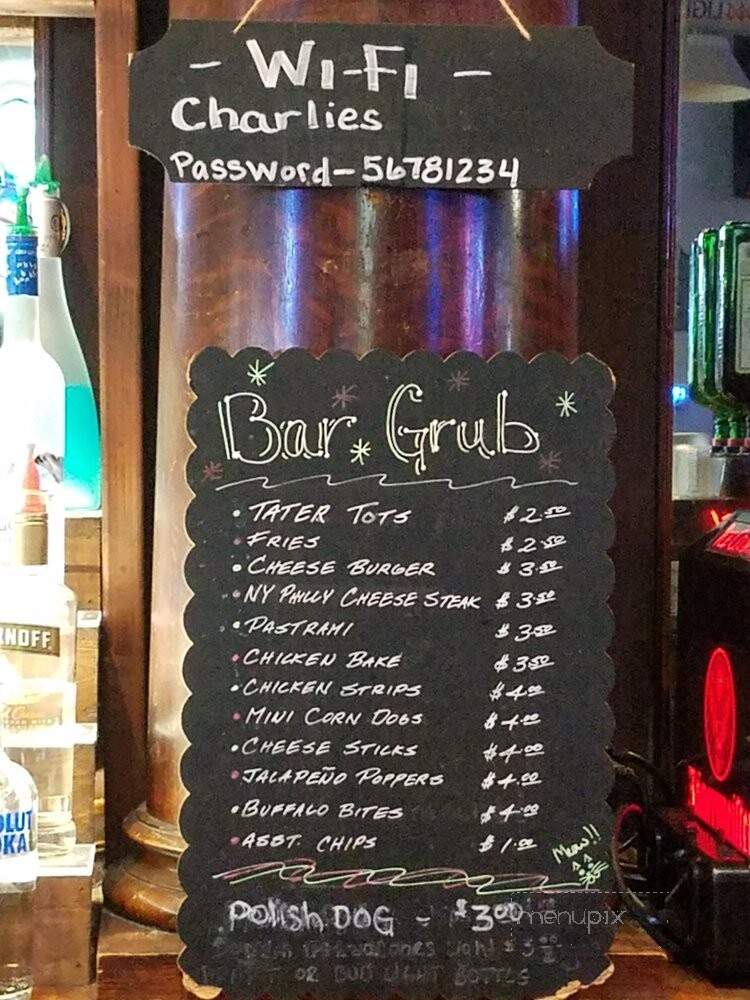 - WI-FI -
Charlies
Password-56781234
Bar Grub
• TATER TOTS $2.50
• FRIES $2.50
• CHEESE BURGER $3.50
• NY PHILLY CHEESE STEAK $3.50
• PASTRAMI $3.50
• CHICKEN BAKE $3.50
• CHICKEN STRIPS $4.00
• MINI CORN DOGS $4.00
• CHEESE STICKS $4.00
• JALAPEÑO POPPERS $4.00
• BUFFALO BITES $4.00
• ASST. CHIPS $1.00
Meow!!
POLISH DOG - $3.00
OR BUD LIGHT BOTTLES
menupix
NOFF
OLUT
DKA